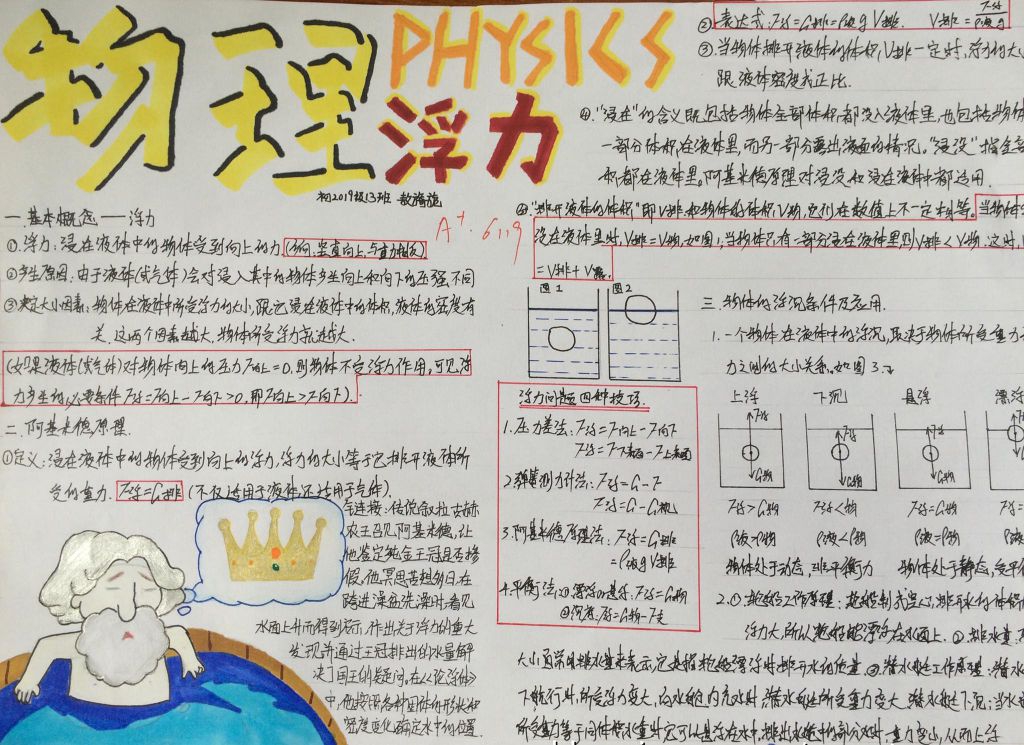 物理
PHYSICS
浮力
初2019级13班
A+ 6119
一.基本概念——浮力
①浮力:浸在液体中的物体受到向上的力(方向:竖直向上,与重力相反)
②产生原因:由于液体(或气体)会对浸入其中的物体产生向上和向下的压强不同
③决定大小因素:物体在液体中所受浮力的大小,跟它浸在液体中的体积,液体的密度有
关.这两个因素越大,物体所受浮力就越大.
(如果液体(或气体)对物体向上的压力F向上=0.则物体不受浮力作用,可见浮
力产生的必要条件F浮=F向上-F向下>0,即F向上>F向下).
二.阿基米德原理.
①定义:浸在液体中的物体受到向上的浮力,浮力的大小等于它排开液体所
受的重力.F浮=G排(不仅适用于液体,还适用于气体).
链接:传说叙拉古赫
农王召见阿基米德,让
他鉴定纯金王冠是否掺
假.他冥思苦想多日,在
跨进澡盆洗澡时,看见
水面上升而得到启示,作出关于浮力的重大
发现,并通过王冠排出的水量解
决了国王的疑问,在《论浮体》
中,他按照各种固体的形状和
密度变化确定水中的位置.
②表达式:F浮=G排=ρ液gV排. V排=F浮/ρ液g
③当物体排开液体的体积V排一定时,浮力的大
跟液体密度成正比.
④."浸在"的含义既包括物体全部体积都没入液体里,也包括物体
一部分体积在液体里,而另一部分露出液面的情况."浸没"指全部
积都在液体里.阿基米德原理对浸没和浸在液体中都适用.
"排开液体的体积"即V排和物体的体积V物,它们在数值上不一定相等.当物体
浸在液体里时,V排=V物,如图1,当物体只有一部分浸在液体里,则V排<V物.这时,
=V排+V露.
图1 图2
浮力问题四种技巧.
1.压力差法:F浮=F向上-F向下
F浮=F下表面-F上表面
2.弹簧测力计法:F浮=G-F
F浮=G-G视
3.阿基米德原理法:F浮=G排
=ρ液gV排
4.平衡法:①漂浮or悬浮:F浮=G物
②沉底:F浮=G物-F支
三.物体的浮沉条件及应用.
1.一个物体在液体中的浮沉,取决于物体所受重力
力之间的大小关系.如图3.
上浮 下沉 悬浮 漂浮
F浮 F浮 F浮 F浮
G物 G物 G物 G物
F浮>G物 F浮<物 F浮=G物 F浮=G物
ρ液>ρ物 ρ液<ρ物 ρ液=ρ物 ρ液>ρ物
物体处于动态,非平衡力 物体处于静态,受平
2.①轮船工作原理:轮船制成空心,排开水的体积
浮力大,所以轮船能漂浮在水面上.②排水量:
大小通常用排水量来表示,它是指轮船漂浮时排开水的质量.③潜水艇工作原理:潜水
下航行时,所受浮力不变,向水舱内充水时,潜水艇所受重力变大,潜水艇下沉;当水
所受重力等于同体积水重时,它可以悬浮在水中,排出水舱中的部分水时,重力变小,从而上浮